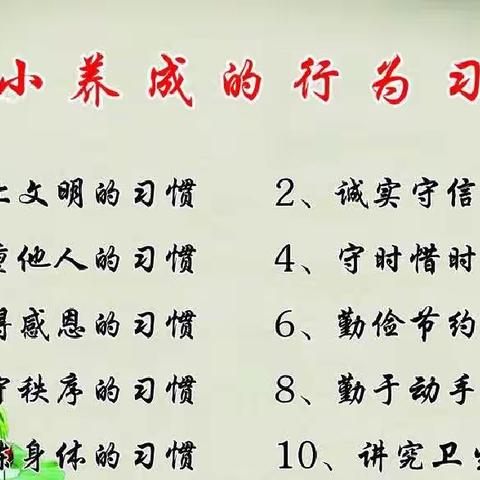 小养成的行为习
上文明的习惯 2、诚实守信
重他人的习惯 4、守时惜时
得感恩的习惯 6、勤俭节约
守秩序的习惯 8、勤于动手
炼身体的习惯 10、讲究卫生